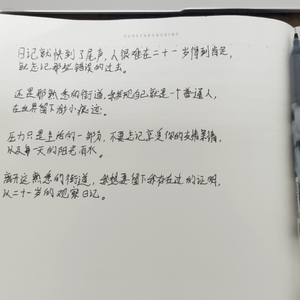 日记就快到了尾声,人很难在二十一岁得到肯定,
就忘记那些错误的过去。
还是那熟悉的街道,我发现自己就是一个普通人,
在世界留下的小痕迹。
压力只是生活的一部分,不要忘记享受你的亲情
以及每一天的阳光
离开这熟悉的街道,我想要留下我存在过的证明,
以二十一岁的观察日记。